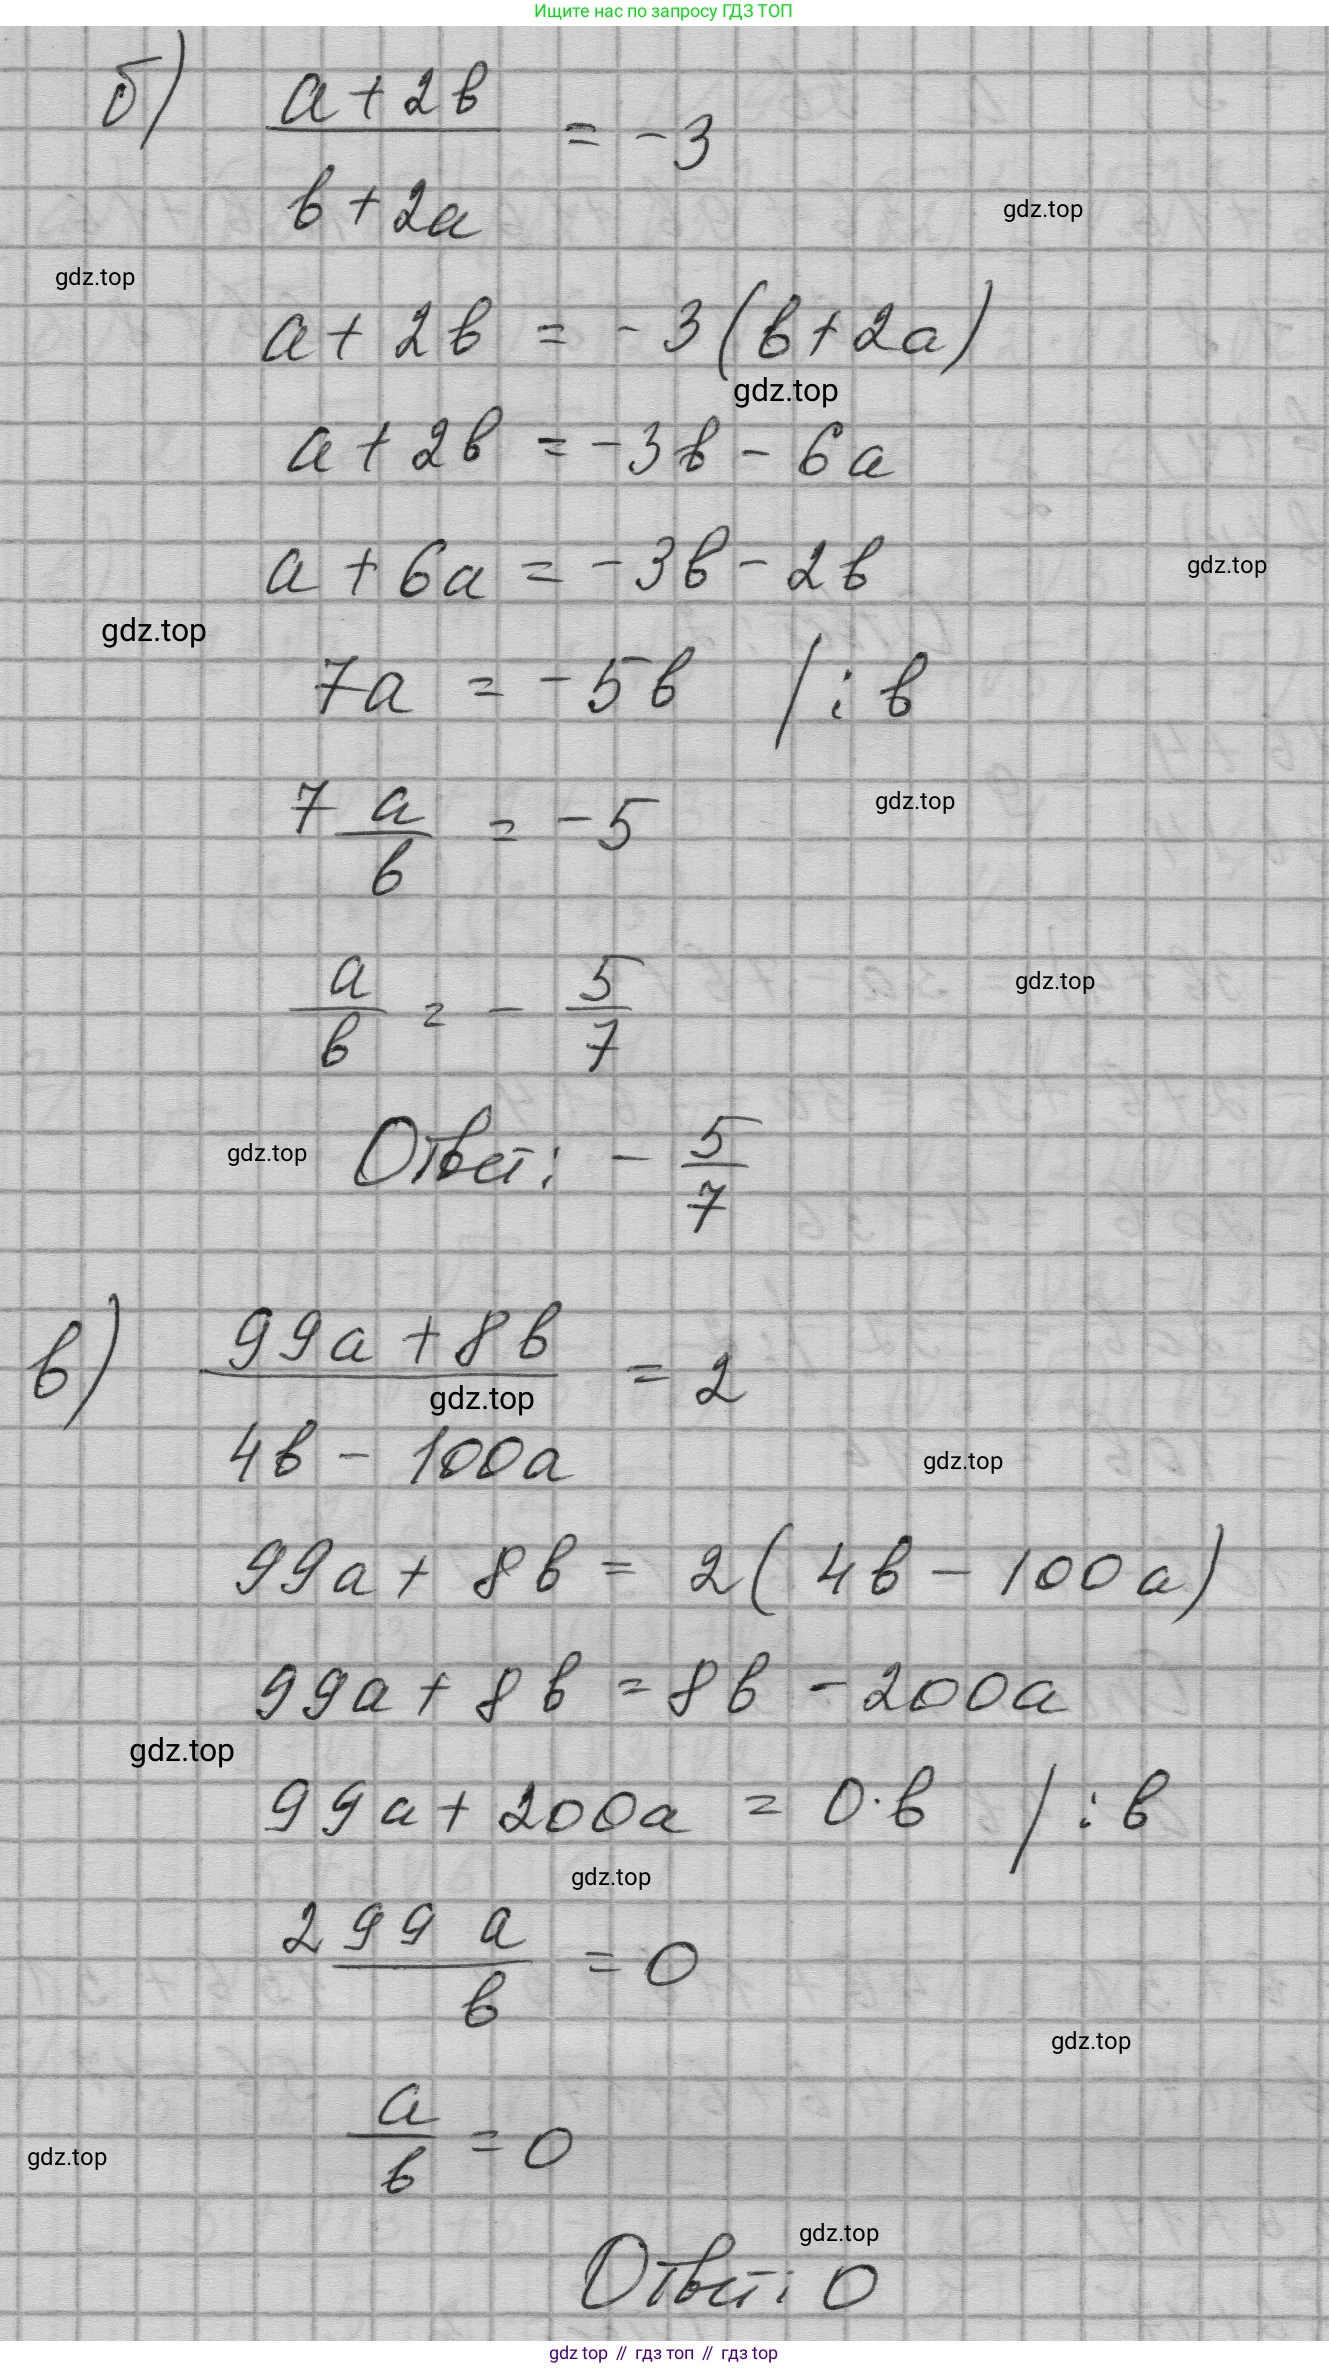 Ищите нас по запросу ГДЗ ТОП
б) (a + 2b)/(b + 2a) = -3
gdz.top
gdz.top
a + 2b = -3(b + 2a)
gdz.top
a + 2b = -3b - 6a
a + 6a = -3b - 2b
gdz.top
gdz.top
7a = -5b / : b
7 a/b = -5
gdz.top
a/b = - 5/7
gdz.top
gdz.top
Ответ: - 5/7
в) (99a + 8b)/(4b - 100a) = 2
gdz.top
gdz.top
99a + 8b = 2(4b - 100a)
99a + 8b = 8b - 200a
gdz.top
99a + 200a = 0·b / : b
gdz.top
299 a/b = 0
gdz.top
a/b = 0
gdz.top
gdz.top
Ответ: 0
gdz top // гдз топ // гдз top